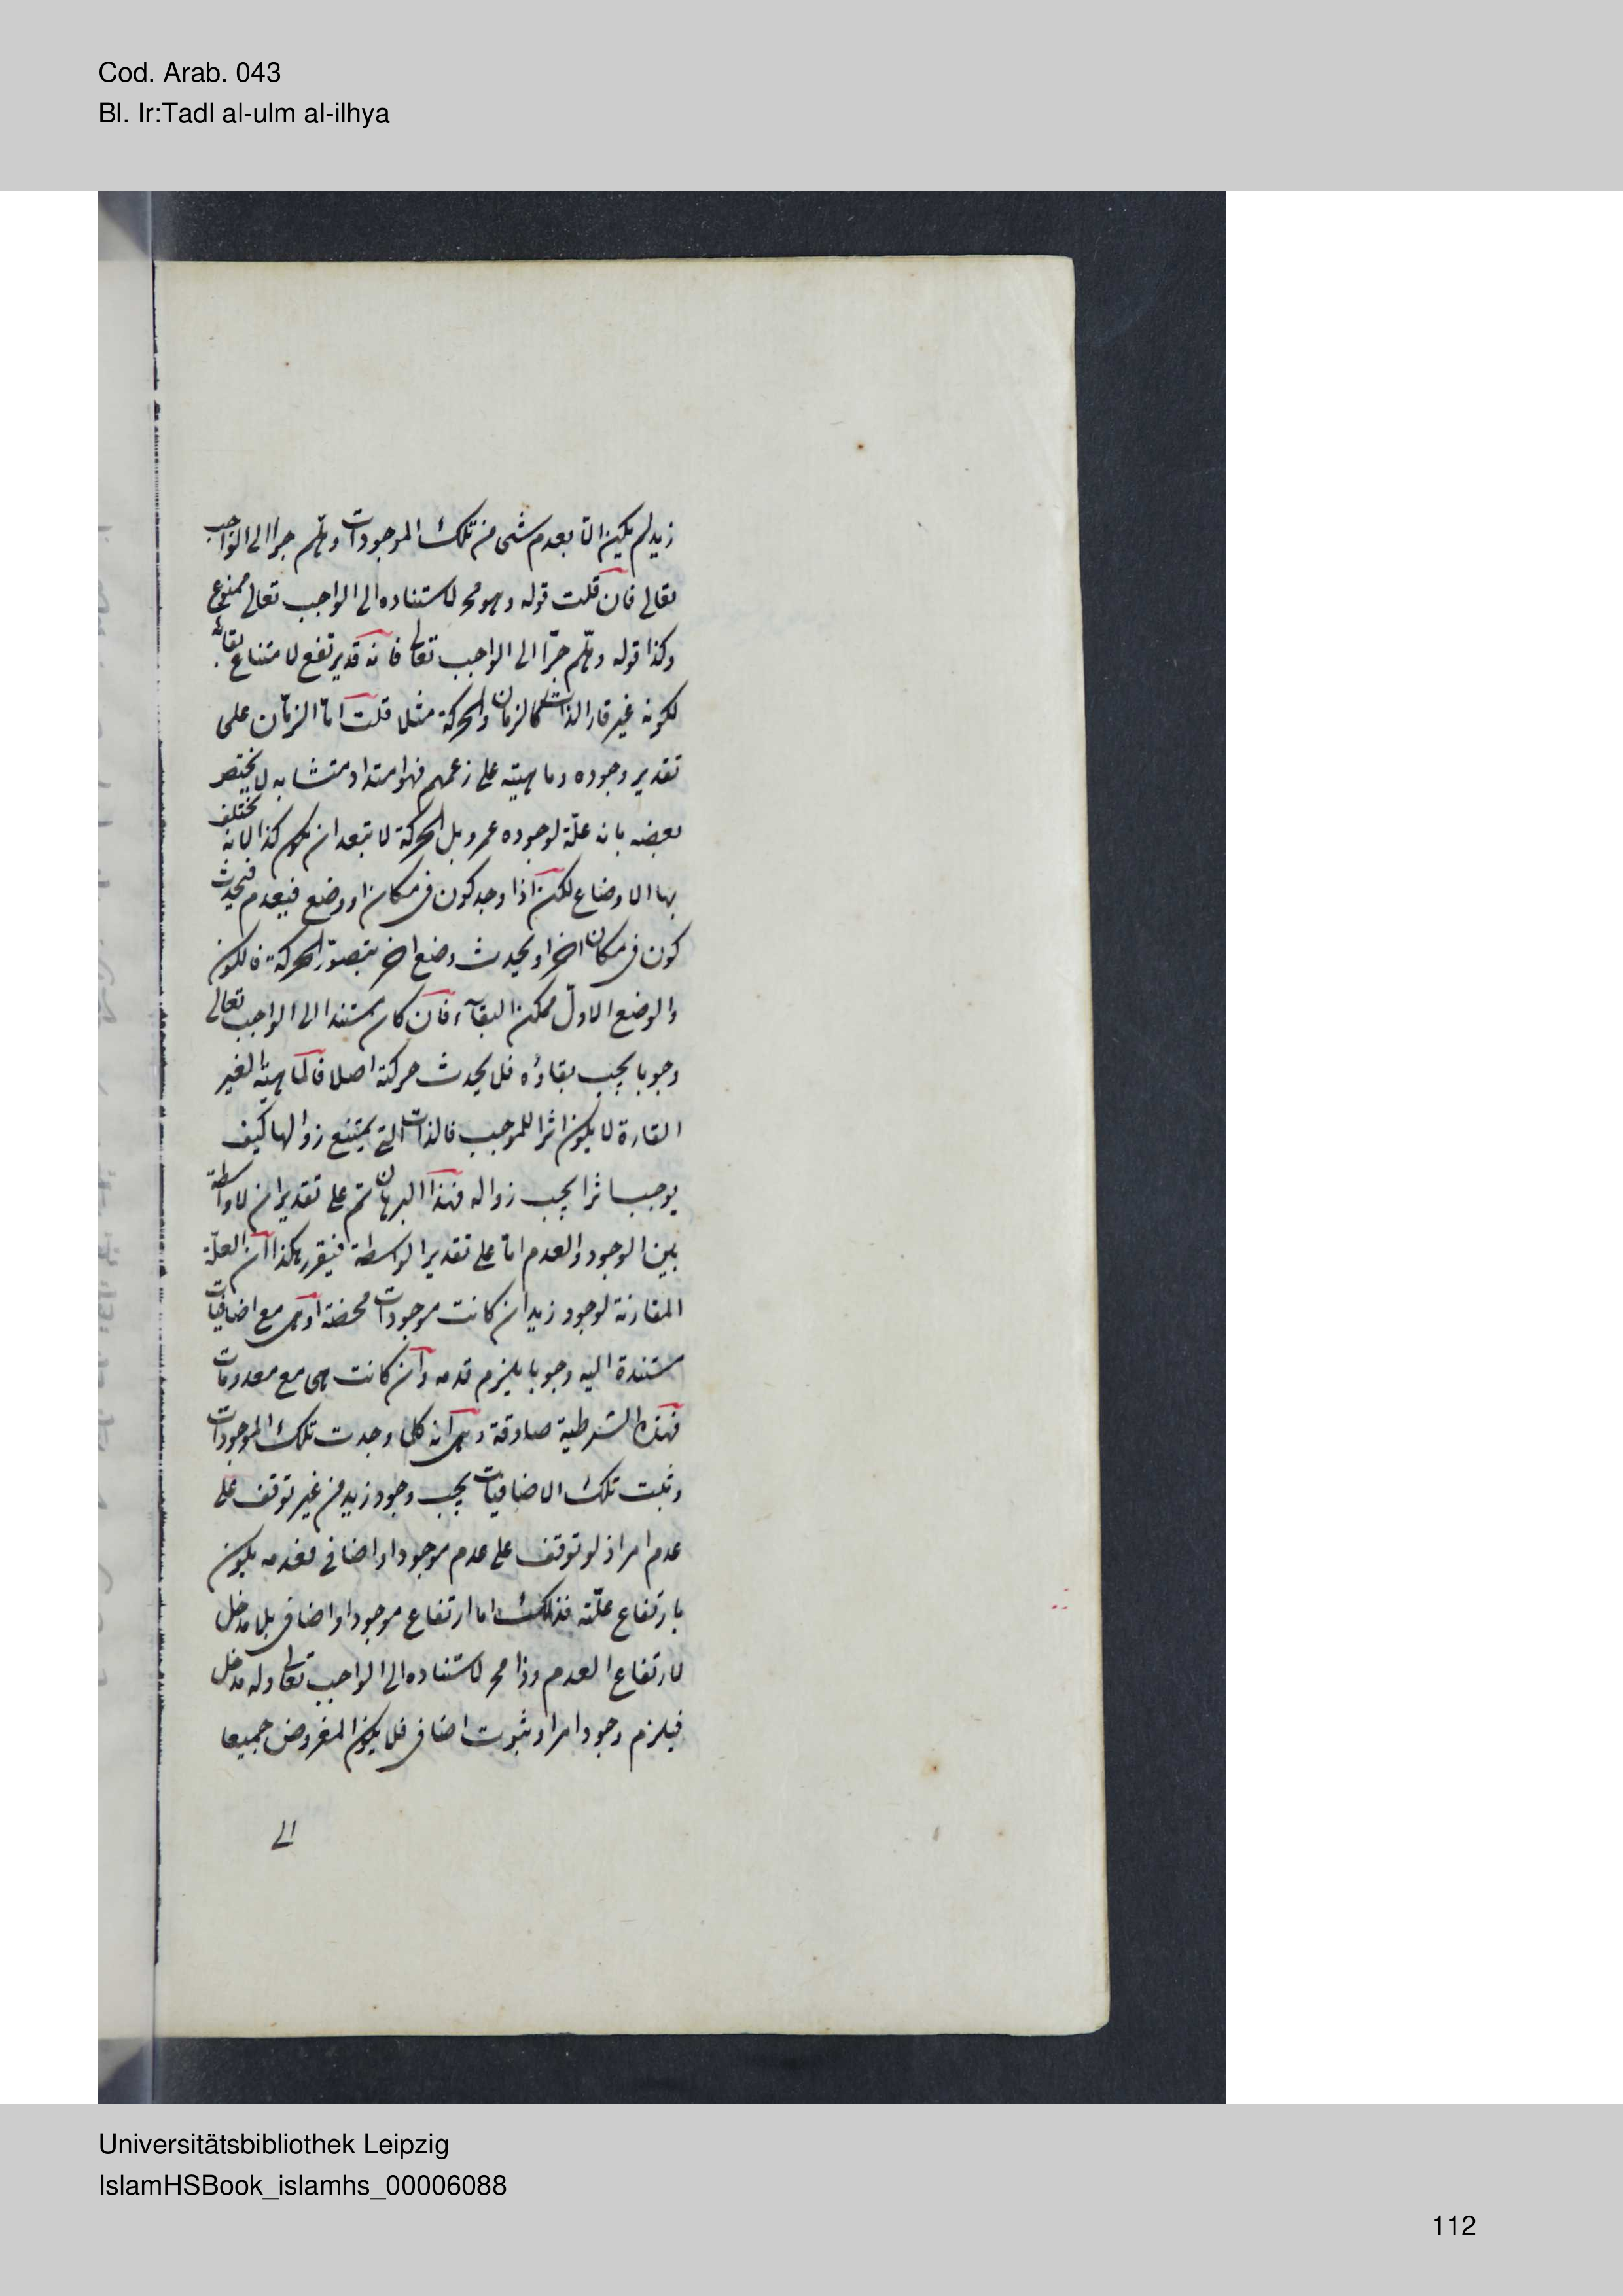 Cod. Arab. 043
Bl. Ir:Tadl al-ulm al-ilhya
زيد لم يكن الا بعدم شى من تلك الموجودات وهلم جرا الى الواجب
تعالى فان قلت قوله وهو مح لاستناده الى الواجب تعالى ممنوع
وكذا قوله وهلّم جرّا الى الواجب تعالى فانه قد يرتفع لامتناع بقائه
لكونه غير قار الذات كالزمان والحركة مثلا قلت امّا الزمان على
تقدير وجوده وماهيته على زعمهم فهو امتداد متشابه لا يختص
بعضه بانه علّة لوجوده عمرو بل الحركة لا تبعد ان يكون كذا لانه يختلف
بها الاوضاع لكن اذا وجد كون فى مكان او وضع فيعدم فيحدث
كون فى مكان اخر او يحدث وضع اخر يتصوّر الحركة فالكون
والوضع الاول ممكن البقآء فان كان مستندا الى الواجب تعالى
وجوبا يجب بقاؤه فلا يحدث حركة اصلا فالماهية الغير
القارة لا يكون اثرا للموجب فالذات التى يمتنع زوالها كيف
يوجب اثرا يجب زواله فهذا البرهان تم على تقدير ان لا واسطة
بين الوجود والعدم امّا على تقدير الواسطة فيقرر هكذا ان العلّة
المقارنة لوجود زيد ان كانت موجودات محضة او هى مع اضافيات
مستندة اليه وجوبا يلزم قدمه وان كانت هى مع معدومات
فهذه الشرطية صادقة وهى انه كلما وجدت تلك الموجودات
وثبت تلك الاضافيات يجب وجود زيد من غير توقف على
عدم امر اذ لو توقف على عدم موجود او اضافى فعدمه يكون
بارتفاع علّته فذلك اما ارتفاع موجود او اضافى بلا مدخل
لارتفاع العدم وذا مح لاستناده الى الواجب تعالى وله مدخل
فيلزم وجود امر او ثبوت اضافى فلا يكون المفروض جميعا
الى
Universitätsbibliothek Leipzig
IslamHSBook_islamhs_00006088
112